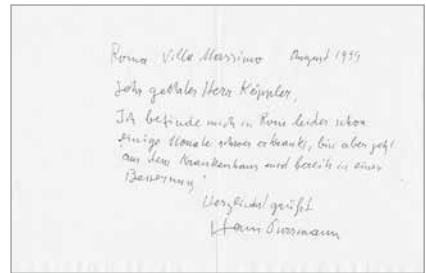 Roma Villa Massimo August 1955
Sehr geehrter Herr Köppler,
Ich befinde mich in Rom leider schon
einige Monate schwer erkrankt, bin aber jetzt
aus dem Krankenhaus und bereits in einer
Besserung
Herzlichst grüßt
Hans Purrmann